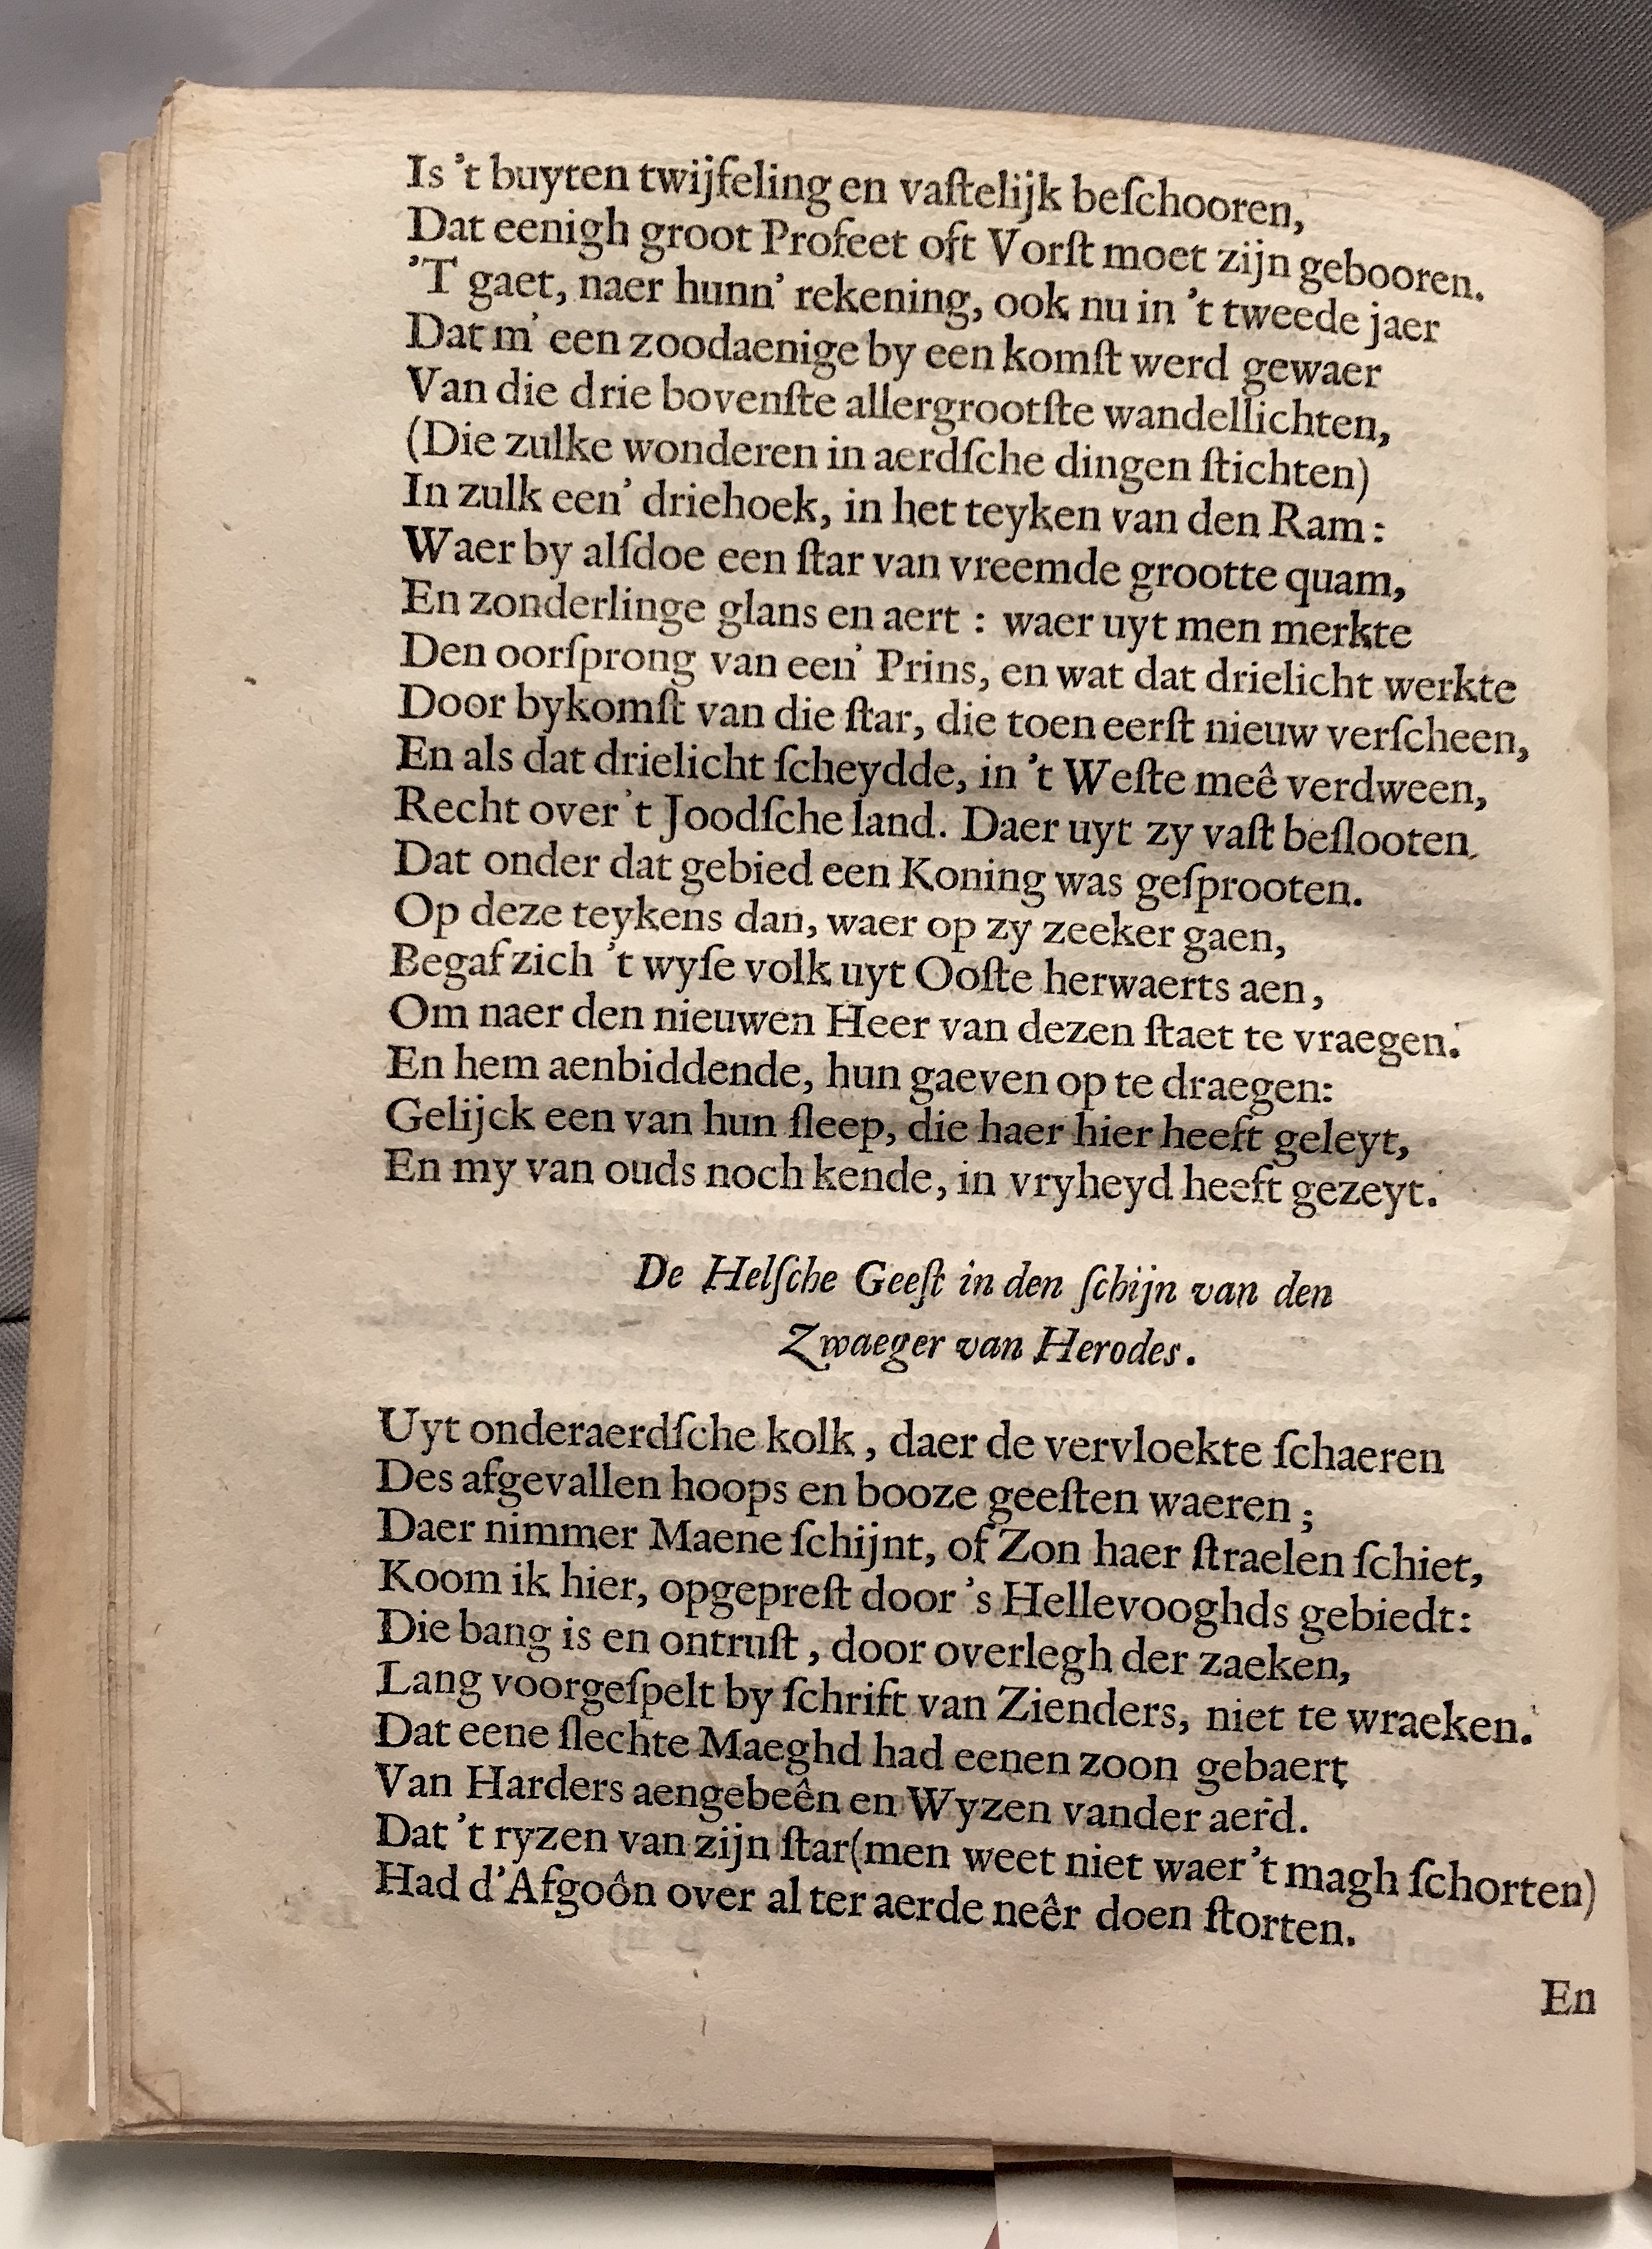 Is 't buyten twijfeling en vaſtelijk beſchooren,
Dat eenigh groot Profeet oft Vorſt moet zijn gebooren.
'T gaet, naer hunn' rekening, ook nu in 't tweede jaer
Dat m' een zoodaenige by een komſt werd gewaer
Van die drie bovenſte allergrootſte wandellichten,
(Die zulke wonderen in aerdſche dingen ſtichten)
In zulk een' driehoek, in het teyken van den Ram:
Waer by alſdoe een ſtar van vreemde grootte quam,
En zonderlinge glans en aert : waer uyt men merkte
Den oorſprong van een' Prins, en wat dat drielicht werkte
Door bykomſt van die ſtar, die toen eerſt nieuw verſcheen,
En als dat drielicht ſcheydde, in 't Weſte meê verdween,
Recht over 't Joodſche land. Daer uyt zy vaſt beſlooten
Dat onder dat gebied een Koning was geſprooten.
Op deze teykens dan, waer op zy zeeker gaen,
Begaf zich 't wyſe volk uyt Ooſte herwaerts aen,
Om naer den nieuwen Heer van dezen ſtaet te vraegen.
En hem aenbiddende, hun gaeven op te draegen:
Gelijck een van hun ſleep, die haer hier heeft geleyt,
En my van ouds noch kende, in vryheyd heeft gezeyt.
De Helſche Geeſt in den ſchijn van den
Zwaeger van Herodes.
Uyt onderaerdſche kolk, daer de vervloekte ſchaeren
Des afgevallen hoops en booze geeſten waeren;
Daer nimmer Maene ſchijnt, of Zon haer ſtraelen ſchiet,
Koom ik hier, opgepreſt door 's Hellevooghds gebiedt:
Die bang is en ontruſt, door overlegh der zaeken,
Lang voorgeſpelt by ſchrift van Zienders, niet te wraeken.
Dat eene ſlechte Maeghd had eenen zoon gebaert
Van Harders aengebeên en Wyzen vander aerd.
Dat 't ryzen van zijn ſtar (men weet niet waer 't magh ſchorten)
Had d'Afgoôn over al ter aerde neêr doen ſtorten.
En